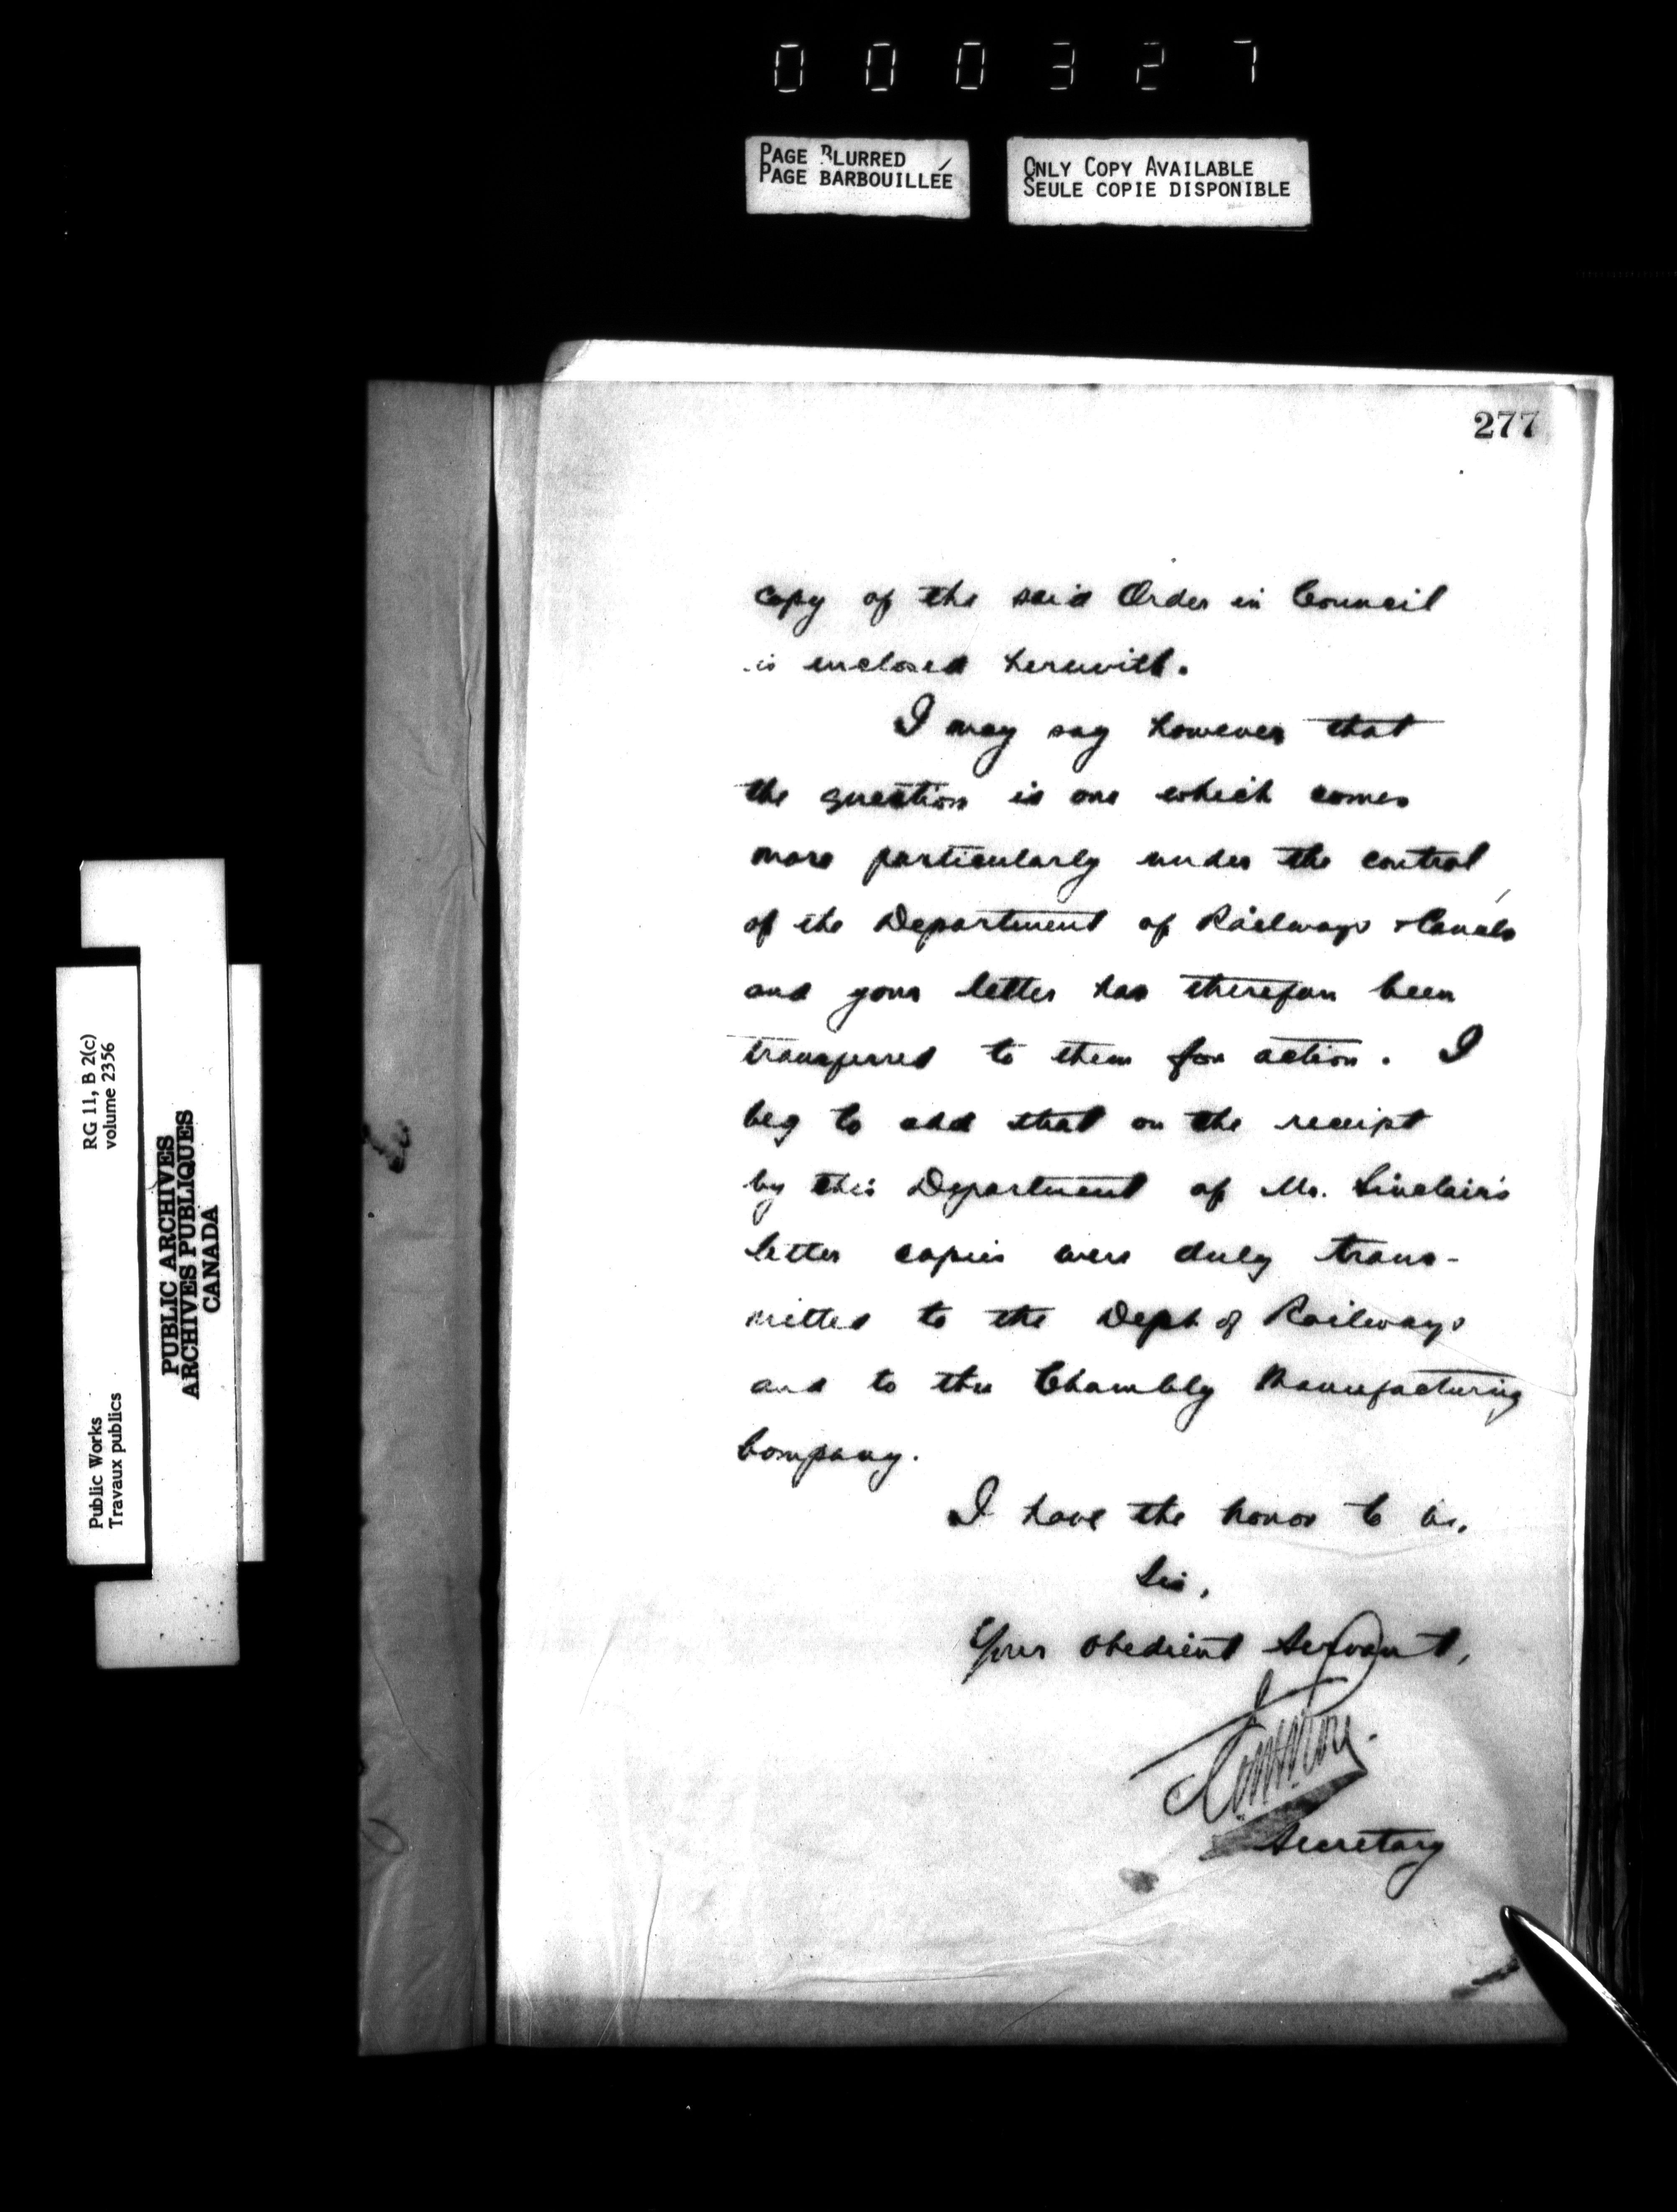 000327
PAGE BLURRED
PAGE BARBOUILLÉE
ONLY COPY AVAILABLE
SEULE COPIE DISPONIBLE
277
copy of the said Order in Council
is enclosed herewith.
I may say however that
the question is one which comes
more particularly under the control
of the Department of Railways & Canals
and your letter has therefore been
transferred to them for action. I
beg to add that on the receipt
by this Department of Mr. Sinclair's
letter copies were duly trans-
mitted to the Dept of Railways
and to the Chambly Manufacturing
Company.
I have the honor to be,
Sir,
Your obedient servant,
Secretary
RG 11, B 2(c)
volume 2356
Public Works
Travaux publics
PUBLIC ARCHIVES
ARCHIVES PUBLIQUES
CANADA